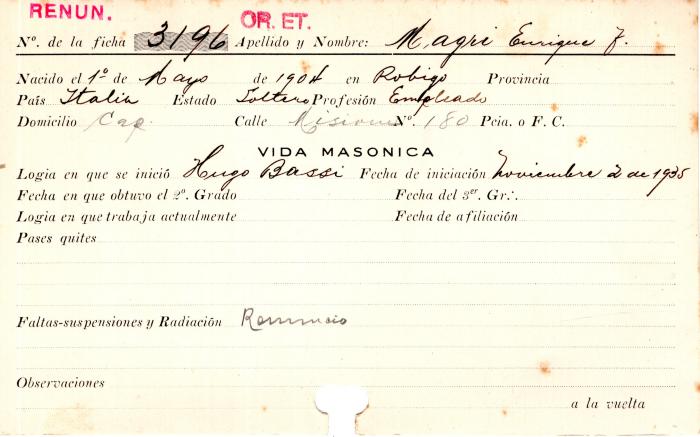 RENUN. OR. ET.
Nº. de la ficha 3196 Apellido y Nombre: Magri Enrique J.
Nacido el 1º de Mayo de 1904 en Robigo Provincia
País Italia Estado Soltero Profesión Empleado
Domicilio Cap. Calle Misiones Nº. 180 Pcia. o F. C.
VIDA MASONICA
Logia en que se inició Hugo Bassi Fecha de iniciación Noviembre 2 de 1935
Fecha en que obtuvo el 2º. Grado Fecha del 3er. Gr∴
Logia en que trabaja actualmente Fecha de afiliación
Pases quites
Faltas-suspensiones y Radiación Renuncio
Observaciones
a la vuelta